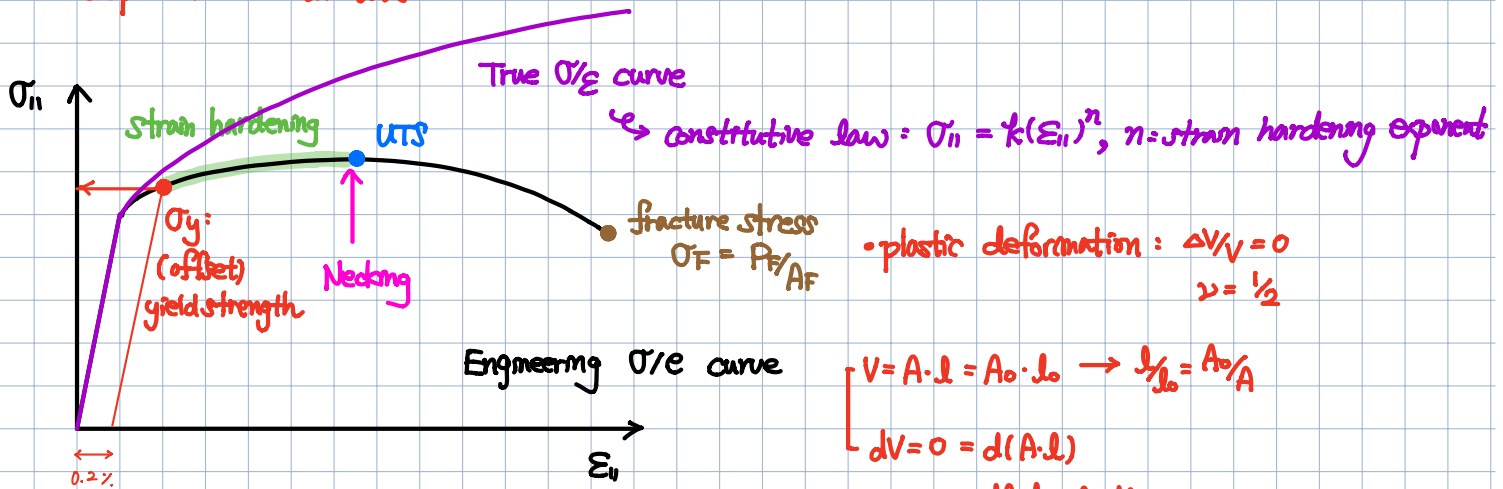 True σ/ε curve
σ₁₁
strain hardening
UTS
constitutive law : σ₁₁ = k(ε₁₁)ⁿ, n = strain hardening exponent
σy :
(offset)
yield strength
Necking
fracture stress
σF = PF/AF
• plastic deformation : ΔV/V = 0
ν = 1/2
Engineering σ/e curve
V = A · l = A₀ · l₀ → l/l₀ = A₀/A
dV = 0 = d(A·l)
ε₁₁
0.2%